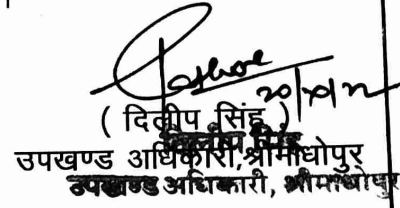 20/
( दिलीप सिंह )
उपखण्ड अधिकारी, श्रीमाधोपुर
उपखण्ड अधिकारी, श्रीमाधोपुर